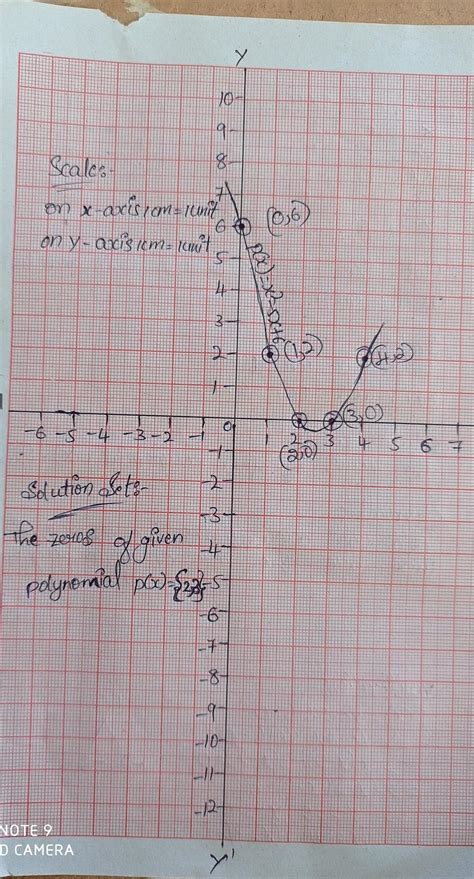 Y
10
9
8
Scales-
7
on x-axis 1cm=1unit
6
(0,6)
on y-axis 1cm=1unit
5
p(x)=x²-5x+6
4
3
2
(1,2)
(4,2)
1
(3,0)
-6 -5 -4 -3 -2 -1 0 1 2 3 4 5 6 7
(2,0)
-1
Solution Set:-
-2
-3
The zeros of given
-4
polynomial p(x)={2,3}
-5
-6
-7
-8
-9
-10
-11
-12
Y'
NOTE 9
D CAMERA